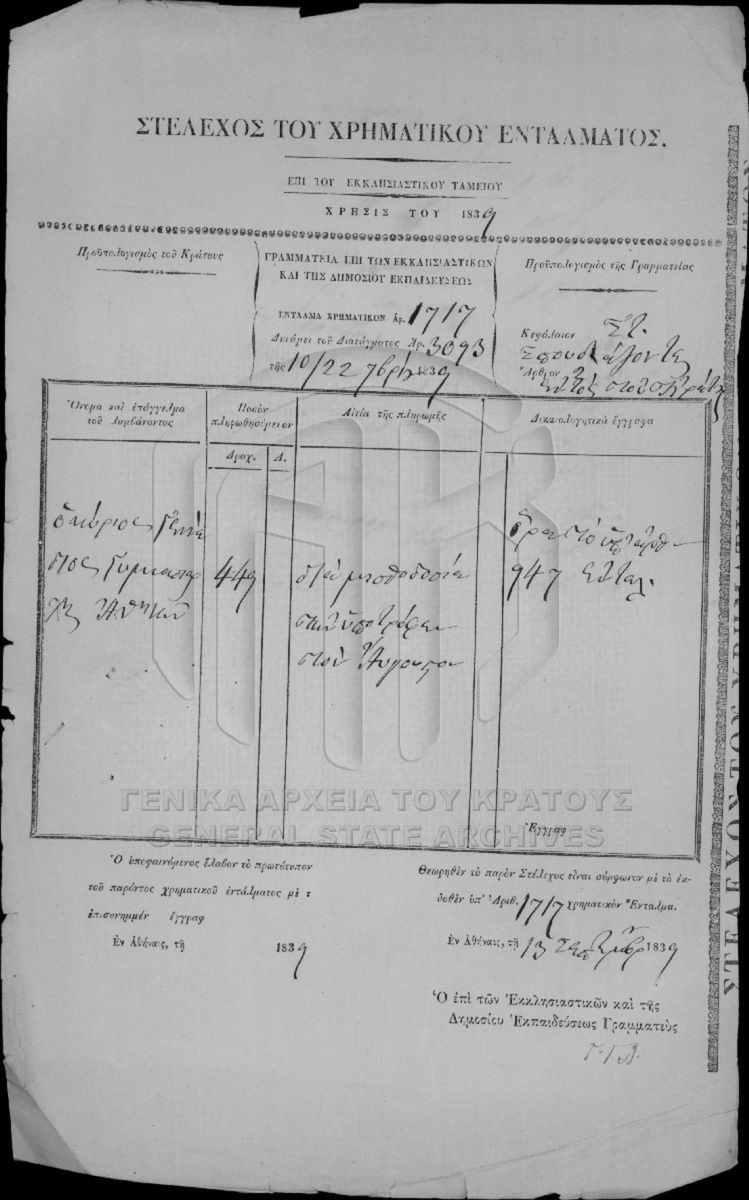 ΣΤΕΛΕΧΟΣ ΤΟΥ ΧΡΗΜΑΤΙΚΟΥ ΕΝΤΑΛΜΑΤΟΣ.
ΕΠΙ ΤΟΥ ΕΚΚΛΗΣΙΑΣΤΙΚΟΥ ΤΑΜΕΙΟΥ
ΧΡΗΣΙΣ ΤΟΥ 1839
Προϋπολογισμὸς τοῦ Κράτους
ΓΡΑΜΜΑΤΕΙΑ ΕΠΙ ΤΩΝ ΕΚΚΛΗΣΙΑΣΤΙΚΩΝ
ΚΑΙ ΤΗΣ ΔΗΜΟΣΙΟΥ ΕΚΠΑΙΔΕΥΣΕΩΣ
ΕΝΤΑΛΜΑ ΧΡΗΜΑΤΙΚΟΝ Αρ. 1717
Δυνάμει τοῦ Διατάγματος Αρ. 3093
τῆς 10/22 7βρίου 1839
Προϋπολογισμὸς τῆς Γραμματείας
Κεφάλαιον ΣΤ.
Σπουδάζοντες
Ἄρθρον 2
ἐντὸς τοῦ Κράτους
Ὄνομα καὶ ἐπάγγελμα
τοῦ λαμβάνοντος
Ποσὸν
πληρωθησόμενον
Δραχ. Λ.
Αἰτία τῆς πληρωμῆς
Δικαιολογητικὰ ἔγγραφα
449
διὰ μισθοδοσία
τῶν ὑποτρόφων
τὸν Αὔγουστον
947 ἔνταλ.
Ἔγγραφ
ΓΕΝΙΚΑ ΑΡΧΕΙΑ ΤΟΥ ΚΡΑΤΟΥΣ
GENERAL STATE ARCHIVES
Ὁ ὑποφαινόμενος ἔλαβον τὸ πρωτότυπον
τοῦ παρόντος χρηματικοῦ ἐντάλματος μὲ τ
ἐπισυνημμέν ἔγγραφ
Ἐν Ἀθήναις, τῇ 1839
Θεωρηθὲν τὸ παρὸν Στέλεχος εἶναι σύμφωνον μὲ τὸ ἐκ-
δοθὲν ὑπ' Ἀριθ. 1717 χρηματικὸν Ἔνταλμα.
Ἐν Ἀθήναις, τῇ 13 Σεπτεμβρ 1839
Ὁ ἐπὶ τῶν Ἐκκλησιαστικῶν καὶ τῆς
Δημοσίου Ἐκπαιδεύσεως Γραμματεὺς
ΣΤΕΛΕΧΟΣ ΤΟΥ ΧΡΗΜΑΤΙΚΟΥ